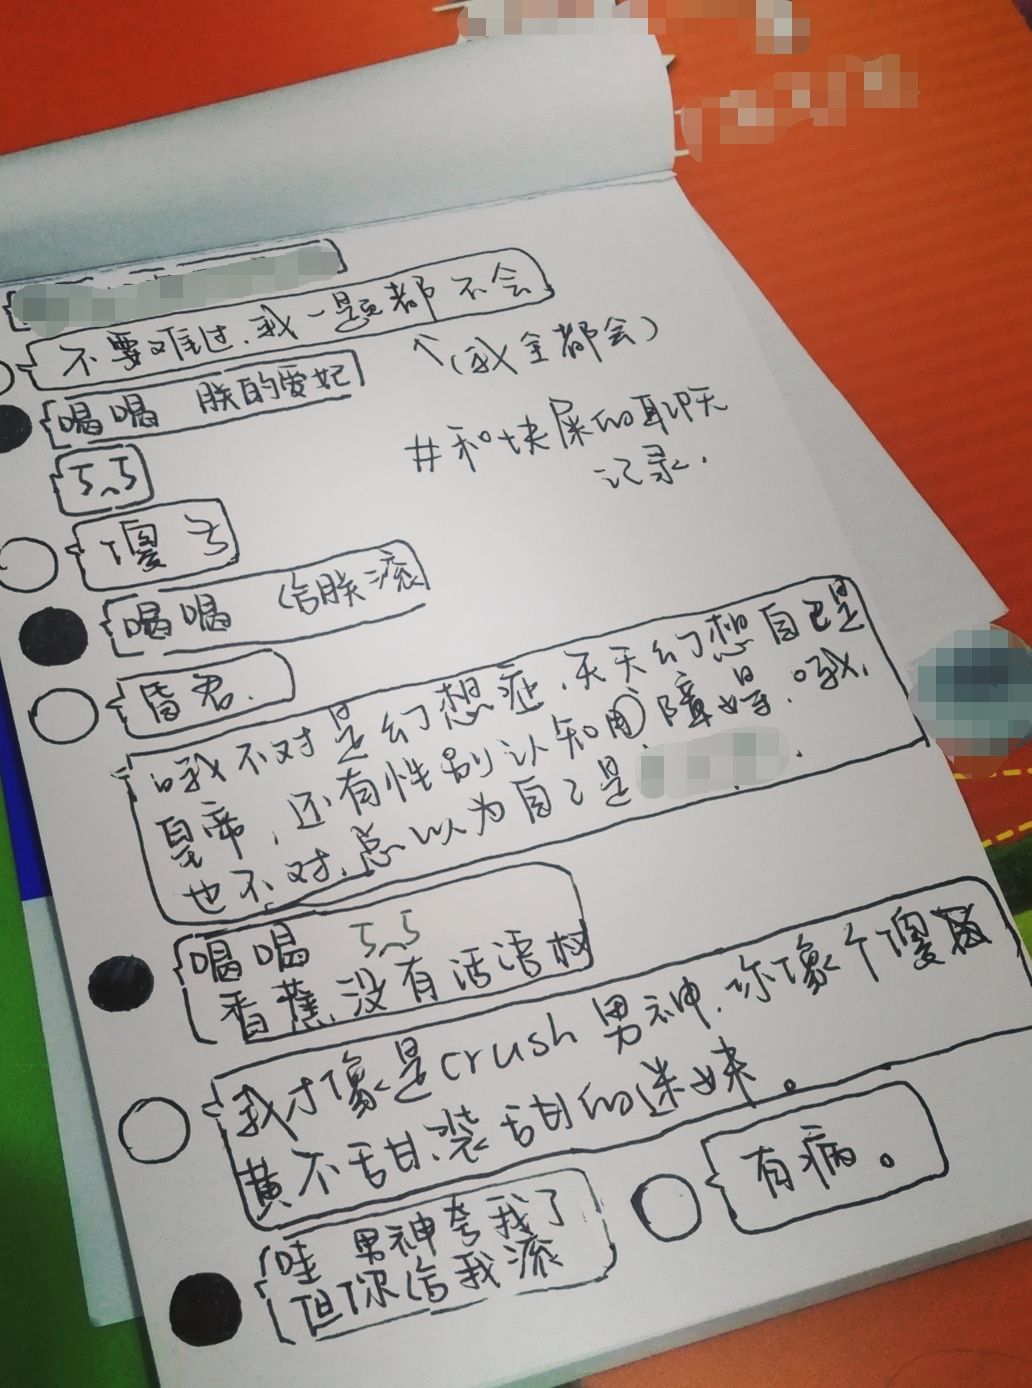 不要难过.我一题都不会
↖(我全都会)
喝喝 朕的爱妃
#和块屎的聊天
记录.
5、5
傻子
喝喝 给朕滚
昏君.
哦不对是幻想症.天天幻想自己是
皇帝,还有性别认知障碍.哦.
也不对.总以为自己是
喝喝 5、5
香蕉没有话语权
我才像是crush男神.你像个傻
黄不甜.装甜的迷妹。
有病。
哇 男神夸我了
但你给我滚